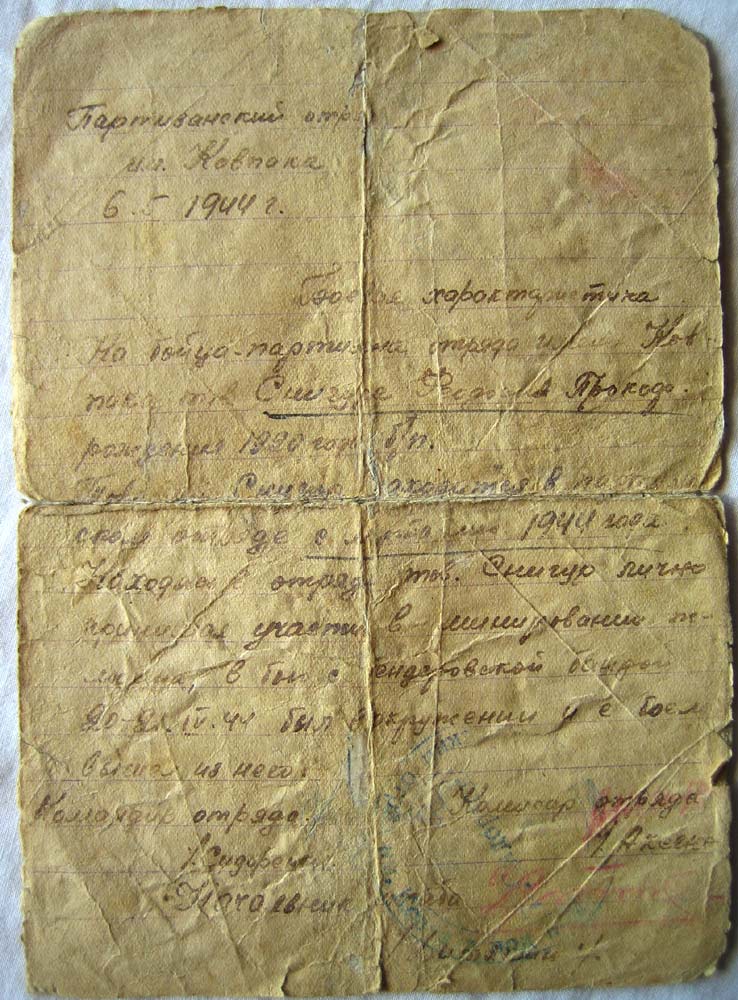 Партизанский отр
им. Ковпака
6.5 1944 г.
Боевая характеристика
На бойца-партизана отряда имен Ков-
пака тов Снигура Прокоф.
рождения 1920 года б/п.
Снигур находится в партизан
ском отряде с 1944 года.
Находясь в отряде тов. Снигур лично
принимал участие в минировании ж-
в бою с бендеровской бандой
20-21.IV.44 был в окружении и с боем
вышел из него.
Командир отряда. Комисар отряда
/Сидоренко
Начальник штаба